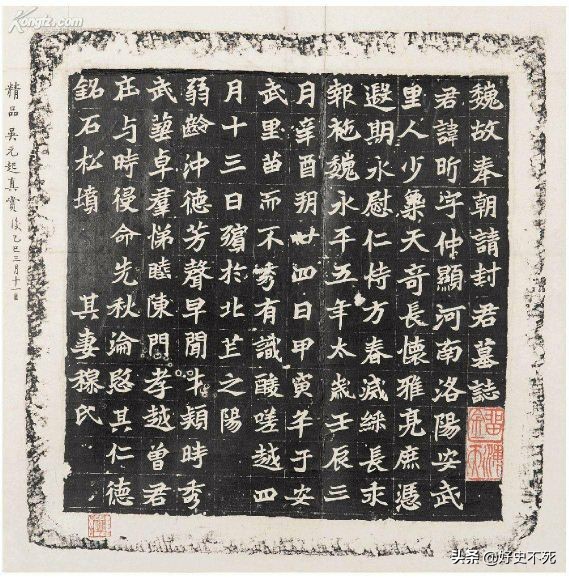 魏故奉朝請封君墓誌
君諱昕字仲顯河南洛陽安武
里人少稟天奇長懷雅亮庶憑
遐期永慰仁恃方春滅綵長乖
報施魏永平五年太歲壬辰三
月辛酉朔廿四日甲寅卒于安
武里苗而不秀有識酸嗟越四
月十三日殯於北芒之陽
弱齡沖德芳聲早聞才穎時秀
武藝卓羣悌睦陳門孝越曾君
与時侵命先秋淪愍其仁德
銘石松墳 其妻穆氏
精品 吳元起真賞 後乙巳三月十一日
Kongfz.com
头条 @好史不死